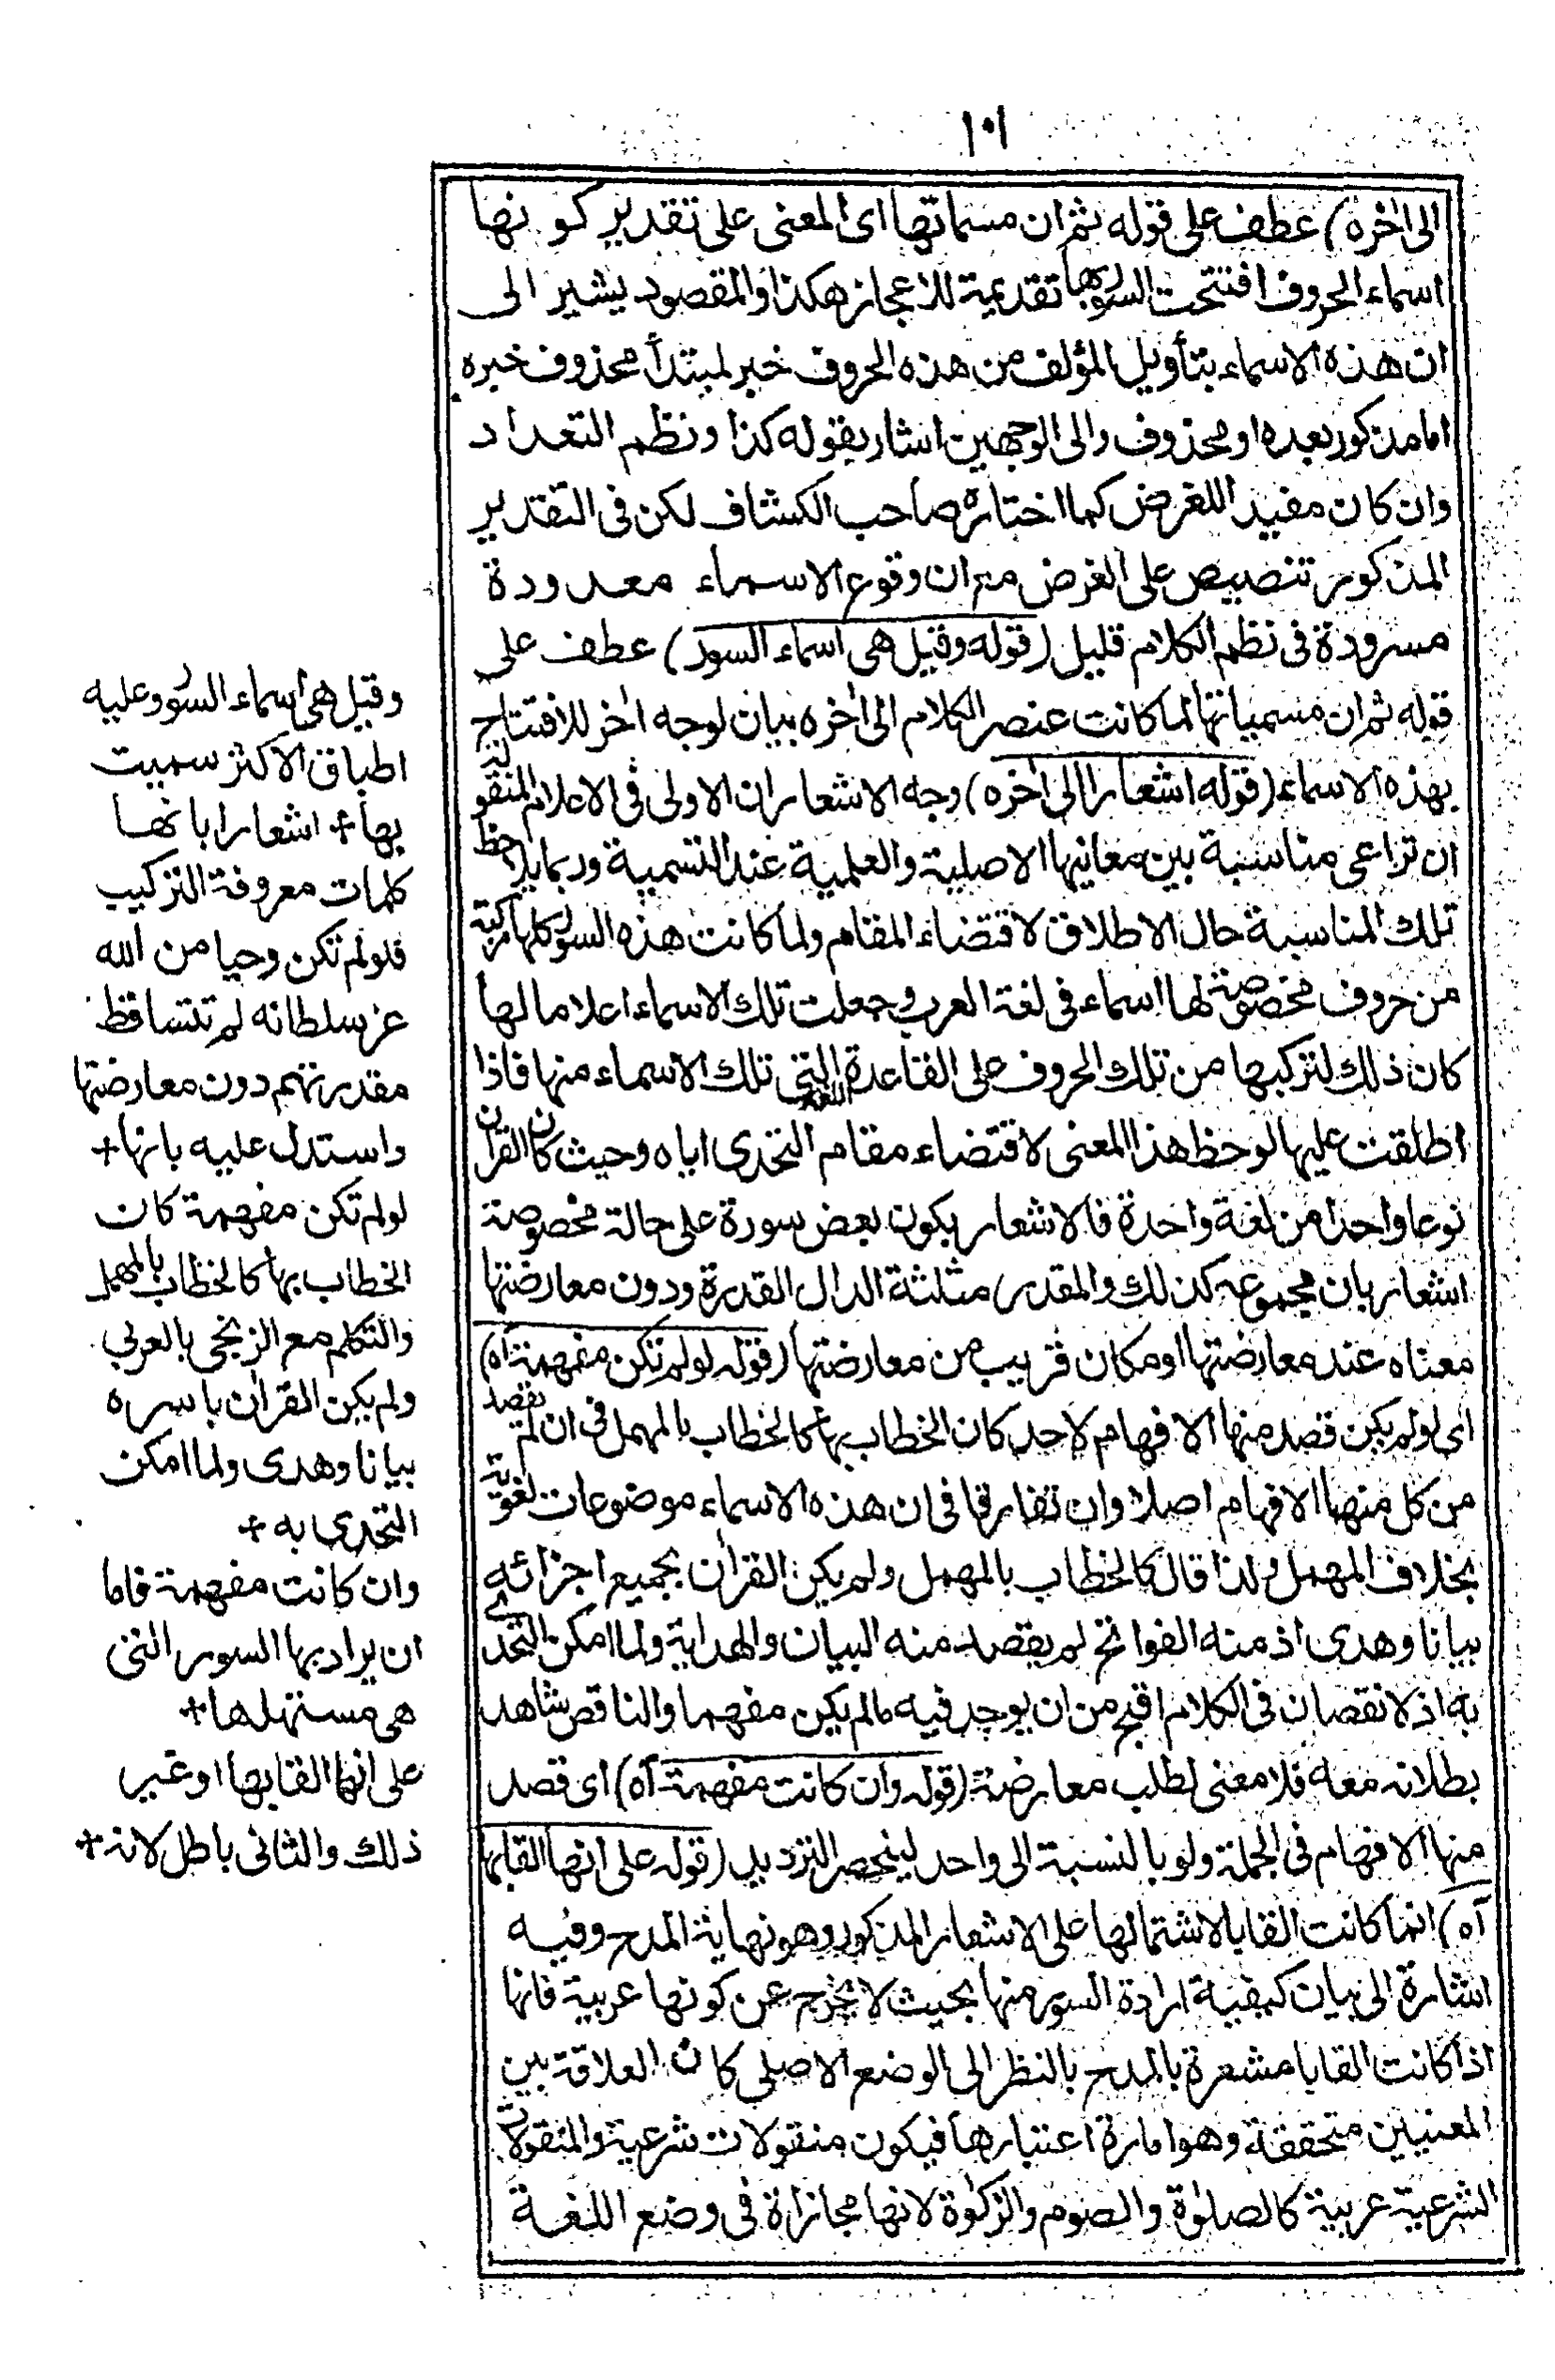 ١٠١
الى اٰخره) عطف على قوله ثم ان مسماتها اى المعنى على تقدير كونها
اسماء الحروف افتتحت السور بها تقدیمة للاعجاز هكذا والمقصود یشیر الى
ان هذه الاسماء بتأویل المؤلف من هذه الحروف خبر لمبتدأ محذوف خبره
اما مذكور بعده او محذوف والى الوجهين اشار بقوله كذا ونظم التعداد
وان كان مفيدا للغرض كما اختاره صاحب الكشاف لكن فى التقدير
المذكور تنصيص على الغرض مع ان وقوع الاسماء معدودة
مسرودة فى نظم الكلام قليل (قوله وقيل هى اسماء السور) عطف على
قوله ثم ان مسمياتها لما كانت عنصر الكلام الى اٰخره بيان لوجه اٰخر للافتتاح
بهذه الاسماء (قوله اشعارا الى اٰخره) وجه الاشعار ان الاولى فى الاعلام المنقولة
ان تراعى مناسبة بين معانيها الاصلية والعلمية عند التسمية وربما يلاحظ
تلك المناسبة حال الاطلاق لاقتضاء المقام ولما كانت هذه السور كلها مركبة
من حروف مخصوصة لها اسماء فى لغة العرب وجعلت تلك الاسماء اعلاما لها
كان ذلك لتركبها من تلك الحروف على القاعدة التى تلك الاسماء منها فاذا
اطلقت عليها لوحظ هذا المعنى لاقتضاء مقام التحدى اياه وحيث كان القراٰن
نوعا واحدا من لغة واحدة فالاشعار بكون بعض سورة على حالة مخصوصة
اشعار بان مجموعه كذلك والمقدرة مثلثة الدال القدرة ودون معارضتها
معناه عند معارضتها او مكان قريب من معارضتها (قوله لو لم تكن مفهمة اٰه)
اى لو لم يكن قصد منها الافهام لاحد كان الخطاب بها كالخطاب بالمهمل فى ان لم يقصد
من كل منهما الافهام اصلا وان تفارقا فى ان هذه الاسماء موضوعات لغوية
بخلاف المهمل ولذا قال كالخطاب بالمهمل ولم يكن القراٰن بجميع اجزائه
بيانا وهدى اذ منه الفواتح لم يقصد منه البيان والهداية ولما امكن التحدى
به اذ لا نقصان فى الكلام اقبح من ان يوجد فيه مالم يكن مفهما والناقص شاهد
بطلانه معه فلا معنى لطلب معارضة (قوله وان كانت مفهمة اٰه) اى قصد
منها الافهام فى الجملة ولو بالنسبة الى واحد لينحصر الترديد (قوله على انها القابها
اٰه) انما كانت القابا لاشتمالها على الاشعار المذكور وهو نهاية المدح وفيه
اشارة الى بيان كيفية ارادة السور منها بحيث لا يخرج عن كونها عربية فانها
اذا كانت القابا مشعرة بالمدح بالنظر الى الوضع الاصلى كان العلاقة بين
المعنيين متحققة وهو امارة اعتبارها فيكون منقولات شرعية والمنقولات
الشرعية عربية كالصلوٰة والصوم والزكوٰة لانها مجازاة فى وضع اللغة
وقيل هى اسماء السور وعليه
اطباق الاكثر سميت
بها + اشعارا بانها
كلمات معروفة التركيب
فلولم تكن وحيا من الله
عز سلطانه لم تتساقط
مقدرتهم دون معارضتها
واستدل عليه بانها +
لولم تكن مفهمة كان
الخطاب بها كالخطاب بالمهمل
والتكلم مع الزنجى بالعربى
ولم يكن القراٰن باسره
بيانا وهدى ولما امكن
التحدى به +
وان كانت مفهمة فاما
ان يراد بها السور التى
هى مستهلها +
على انها القابها او غير
ذلك والثانى باطل لانه +